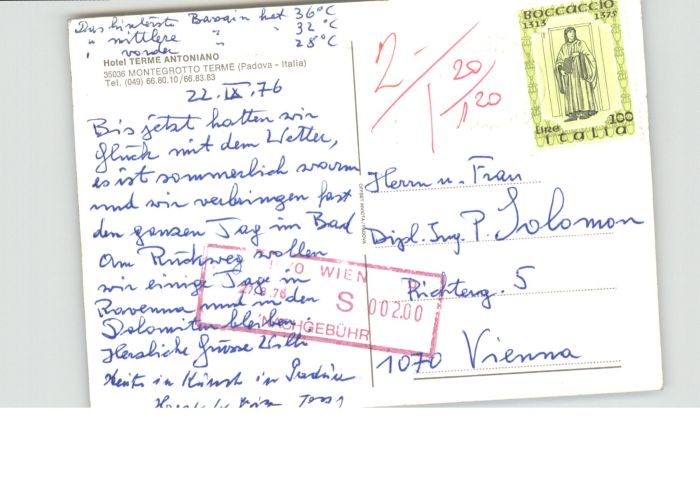 Das hinterste Bassin hat 36°C
" mittlere " " 32°C
" vordere " " 28°C
Hotel TERME ANTONIANO
35036 MONTEGROTTO TERME (Padova - Italia)
Tel. (049) 66.80.10/66.83.83
22.IX.76
Bis jetzt hatten wir
Glück mit dem Wetter,
es ist sommerlich warm
und wir verbringen fast
den ganzen Tag im Bad
Am Rückweg wollen
wir einige Tage in
Ravenna und in den
Dolomiten bleiben.
Herzliche Grüsse Willi
BOCCACCIO
1313 1375
Lire 100
Italia
2.-/20
1/120
Herrn u. Frau
Dipl. Ing. P. Solomon
Richterg. 5
1070 Vienna
WIEN
S 002.00
NACHGEBÜHR